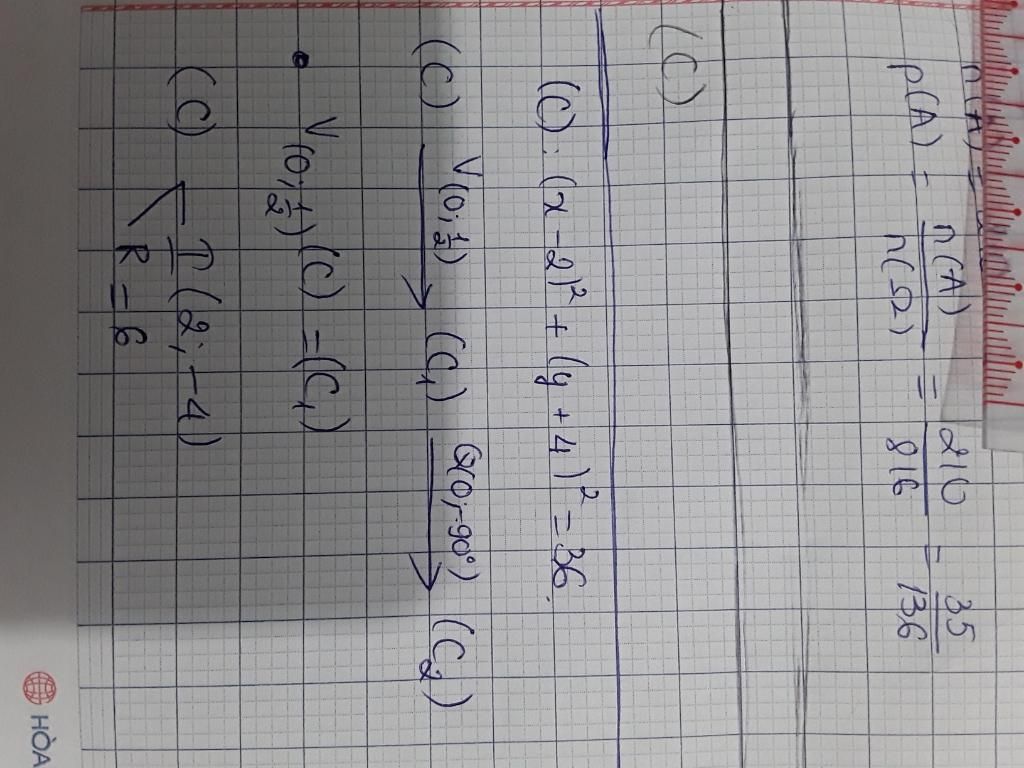 P(A) = n(A)/n(Ω) = 210/816 = 35/136
(C)
(C): (x - 2)² + (y + 4)² = 36.
(C) V(0; 1/2) → (C₁) Q(0; -90°) → (C₂)
• V(0; 1/2) (C) = (C₁)
(C) I (2; -4)
R = 6
HÒA